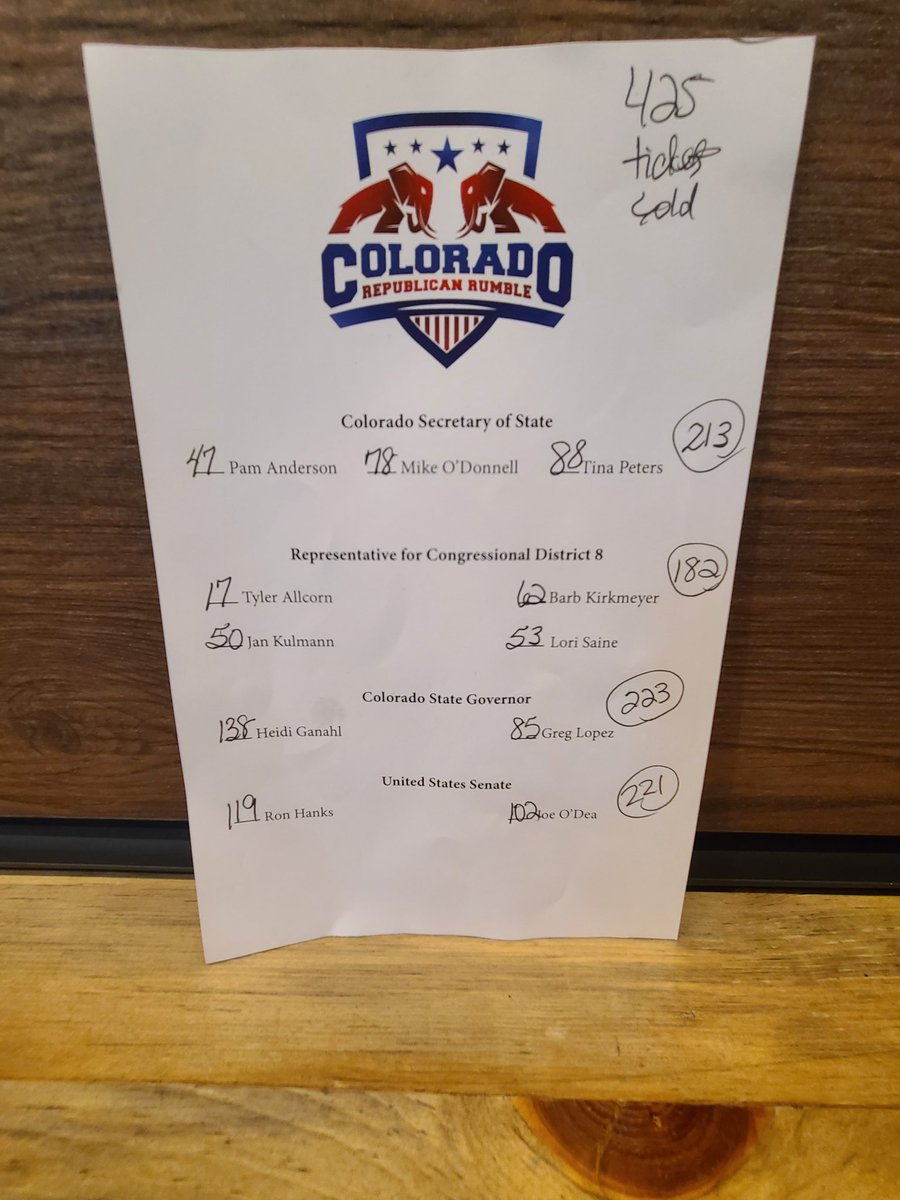 425
tickets
sold
COLORADO
REPUBLICAN RUMBLE
Colorado Secretary of State
213
47 Pam Anderson 78 Mike O'Donnell 88 Tina Peters
Representative for Congressional District 8
182
17 Tyler Allcorn 62 Barb Kirkmeyer
50 Jan Kulmann 53 Lori Saine
Colorado State Governor
223
138 Heidi Ganahl 85 Greg Lopez
United States Senate
221
119 Ron Hanks 102 Joe O'Dea